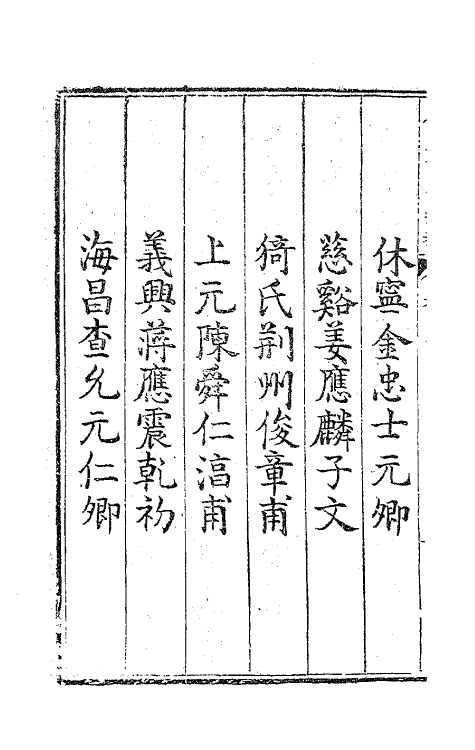 休寧金忠士元卿
慈谿姜應麟子文
猗氏荆州俊章甫
上元陳舜仁湻甫
義興蔣應震乾初
海昌查允元仁卿